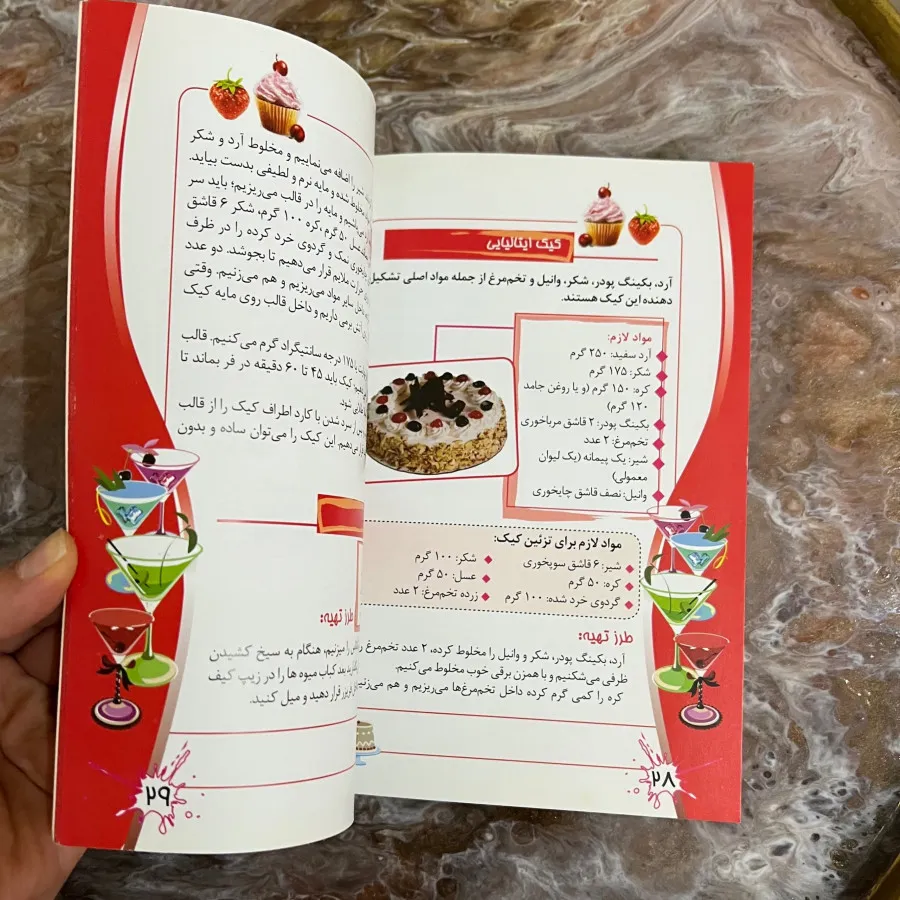 کیک ایتالیایی
آرد، بکینگ پودر، شکر، وانیل و تخم‌مرغ از جمله مواد اصلی تشکیل
دهنده این کیک هستند.
مواد لازم:
آرد سفید: ۲۵۰ گرم
شکر: ۱۷۵ گرم
کره: ۱۵۰ گرم (و یا روغن جامد
۱۲۰ گرم)
بکینگ پودر: ۲ قاشق مرباخوری
تخم‌مرغ: ۲ عدد
شیر: یک پیمانه (یک لیوان
معمولی)
وانیل: نصف قاشق چایخوری
مواد لازم برای تزئین کیک:
شیر: ۶ قاشق سوپخوری
کره: ۵۰ گرم
گردوی خرد شده: ۱۰۰ گرم
شکر: ۱۰۰ گرم
عسل: ۵۰ گرم
زرده تخم‌مرغ: ۲ عدد
طرز تهیه:
آرد، بکینگ پودر، شکر و وانیل را مخلوط کرده، ۲ عدد تخم‌مرغ را
ظرفی می‌شکنیم و با همزن برقی خوب مخلوط می‌کنیم.
کره را کمی گرم کرده داخل تخم‌مرغ‌ها می‌ریزیم و هم می‌زنیم
۲۸
را اضافه می‌نماییم و مخلوط آرد و شکر
مخلوط شده و مایه نرم و لطیفی بدست بیاید.
و مایه را در قالب می‌ریزیم؛ باید سر
عسل ۵۰ گرم، کره ۱۰۰ گرم، شکر ۶ قاشق
نمک و گردوی خرد کرده را در ظرف
حرارت ملایم قرار می‌دهیم تا بجوشد. دو عدد
سایر مواد می‌ریزیم و هم می‌زنیم. وقتی
برمی داریم و داخل قالب روی مایه کیک
۱۷۵ درجه سانتیگراد گرم می‌کنیم. قالب
کیک باید ۴۵ تا ۶۰ دقیقه در فر بماند تا
شود.
از سرد شدن با کارد اطراف کیک را از قالب
می‌دهیم. این کیک را می‌توان ساده و بدون
طرز تهیه:
را میزنیم، هنگام به سیخ کشیدن
بعد کباب میوه ها را در زیپ کیف
فریزر قرار دهید و میل کنید.
۲۹